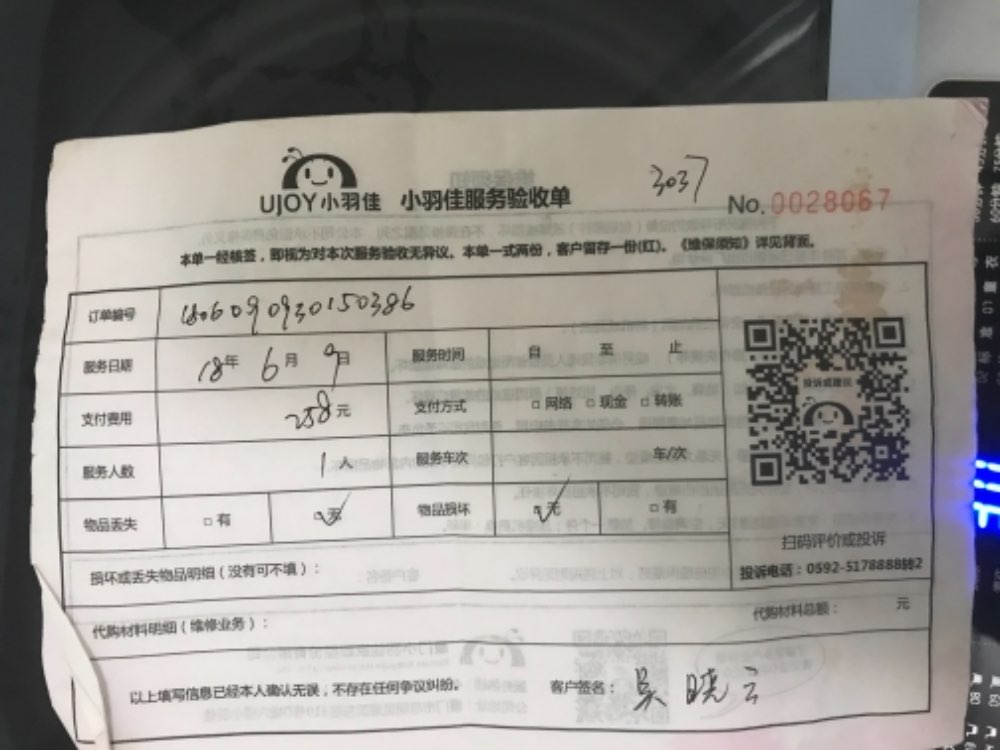 3037
UJOY小羽佳 小羽佳服务验收单 No.0028067
本单一经核签，即视为对本次服务验收无异议。本单一式两份，客户留存一份(红)。《维保须知》详见背面。
订单编号 180609093015038​6
服务日期 18年 6月 9日 服务时间 自 至 止
支付费用 258元 支付方式 □网络 □现金 □转账
服务人数 1人 服务车次 车/次
物品丢失 □有 □无 物品损坏 □无 □有
投诉或建议
扫码评价或投诉
投诉电话：0592-5178888转2
损坏或丢失物品明细（没有可不填）：
代购材料明细（维修业务）： 代购材料总额： 元
以上填写信息已经本人确认无误，不存在任何争议纠纷。 客户签名：吴晓云